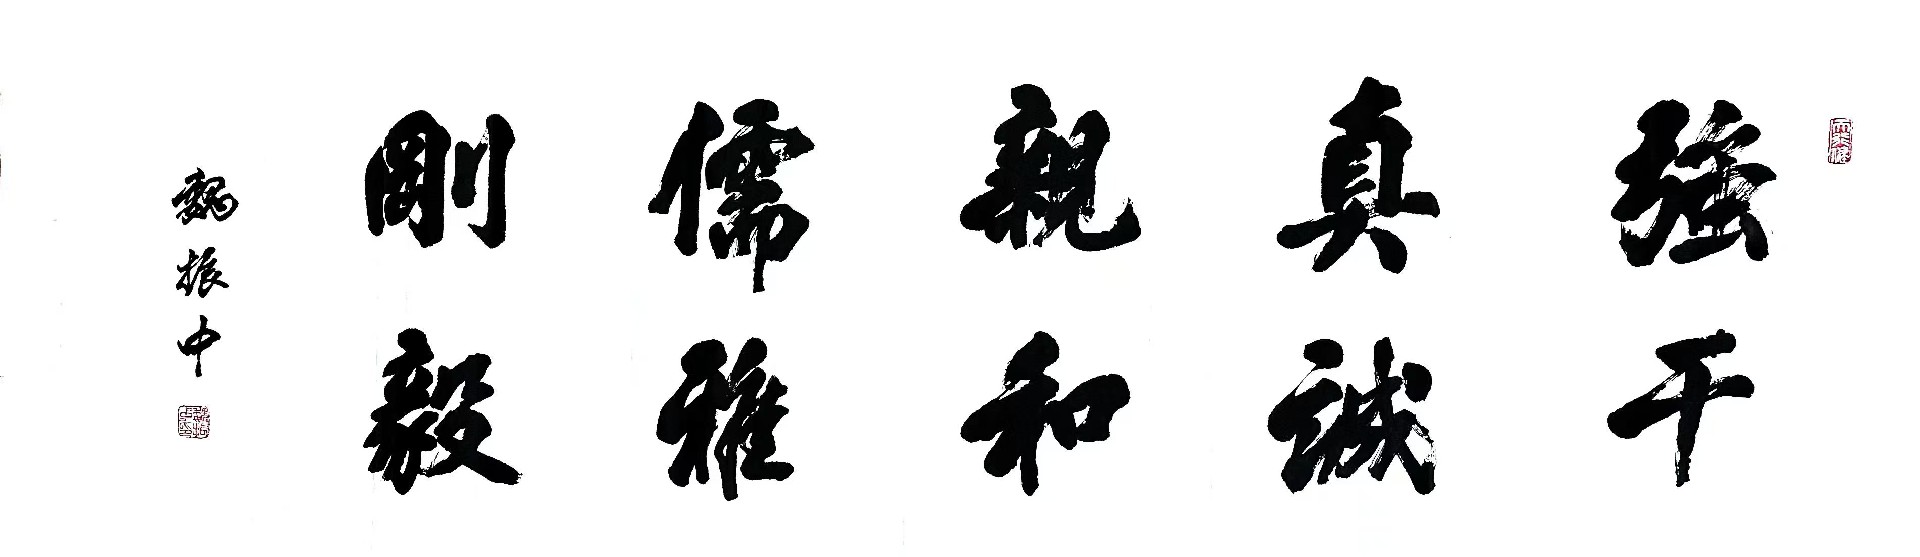 強干
真誠
親和
儒雅
剛毅
魏振中